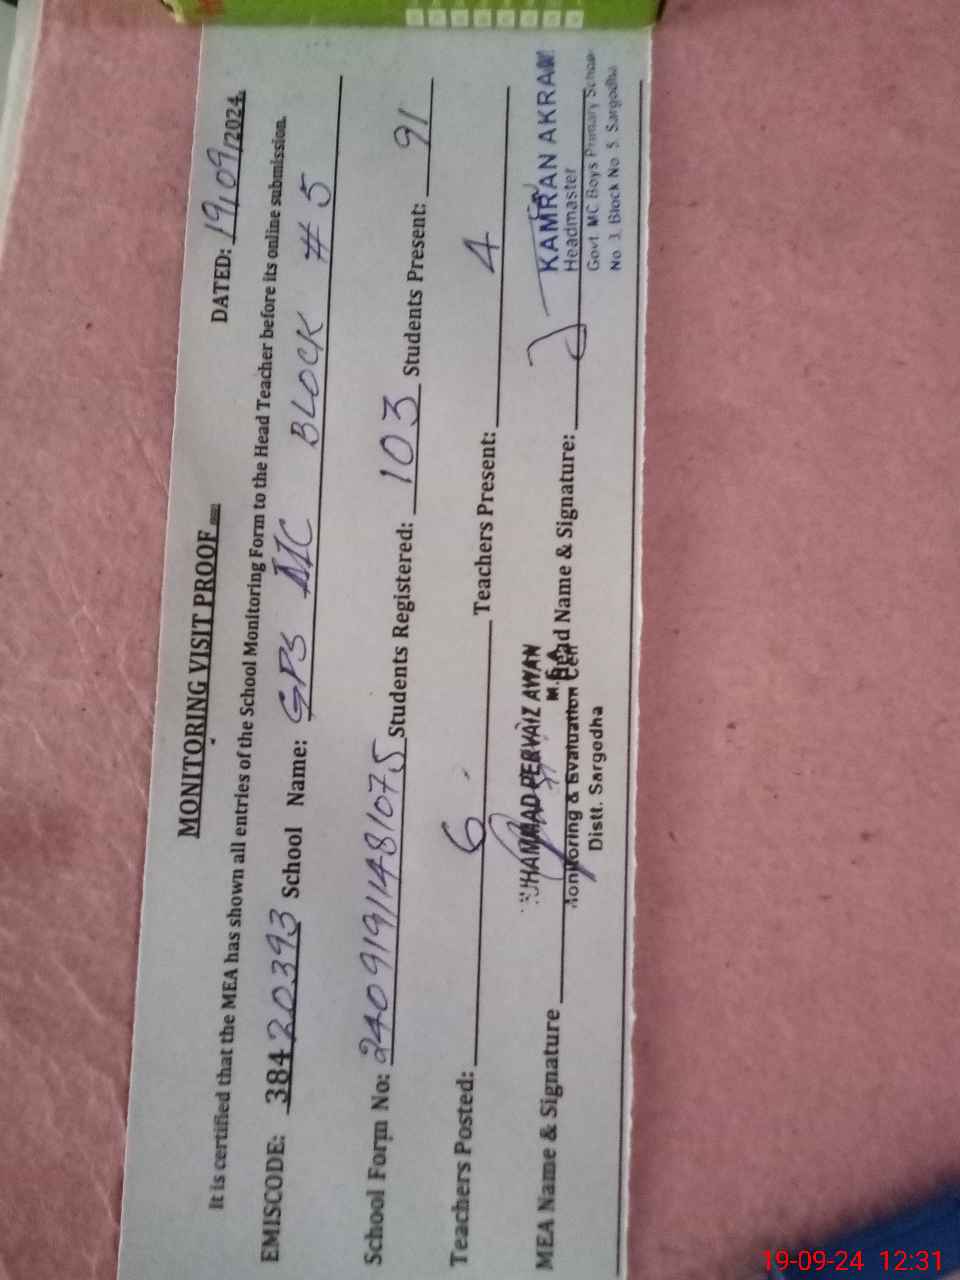 MONITORING VISIT PROOF
DATED: 19/09/2024.
It is certified that the MEA has shown all entries of the School Monitoring Form to the Head Teacher before its online submission.
EMISCODE: 38420393 School Name: GPS MC BLOCK # 5
School Form No: 24091911481075 Students Registered: 103 Students Present: 91
Teachers Posted: 6 Teachers Present: 4
MEA Name & Signature Head Name & Signature:
MUHAMMAD PERVAIZ AWAN
M.E.A
Monitoring & Evaluation Cell
Distt. Sargodha
KAMRAN AKRAM
Headmaster
Govt MC Boys Primary School
No 3, Block No 5 Sargodha
19-09-24 12:31